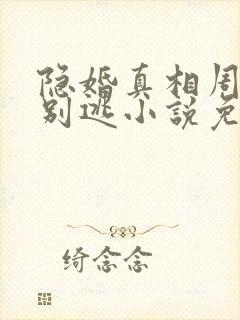 隐婚真相周
别逃小说免
绮念念